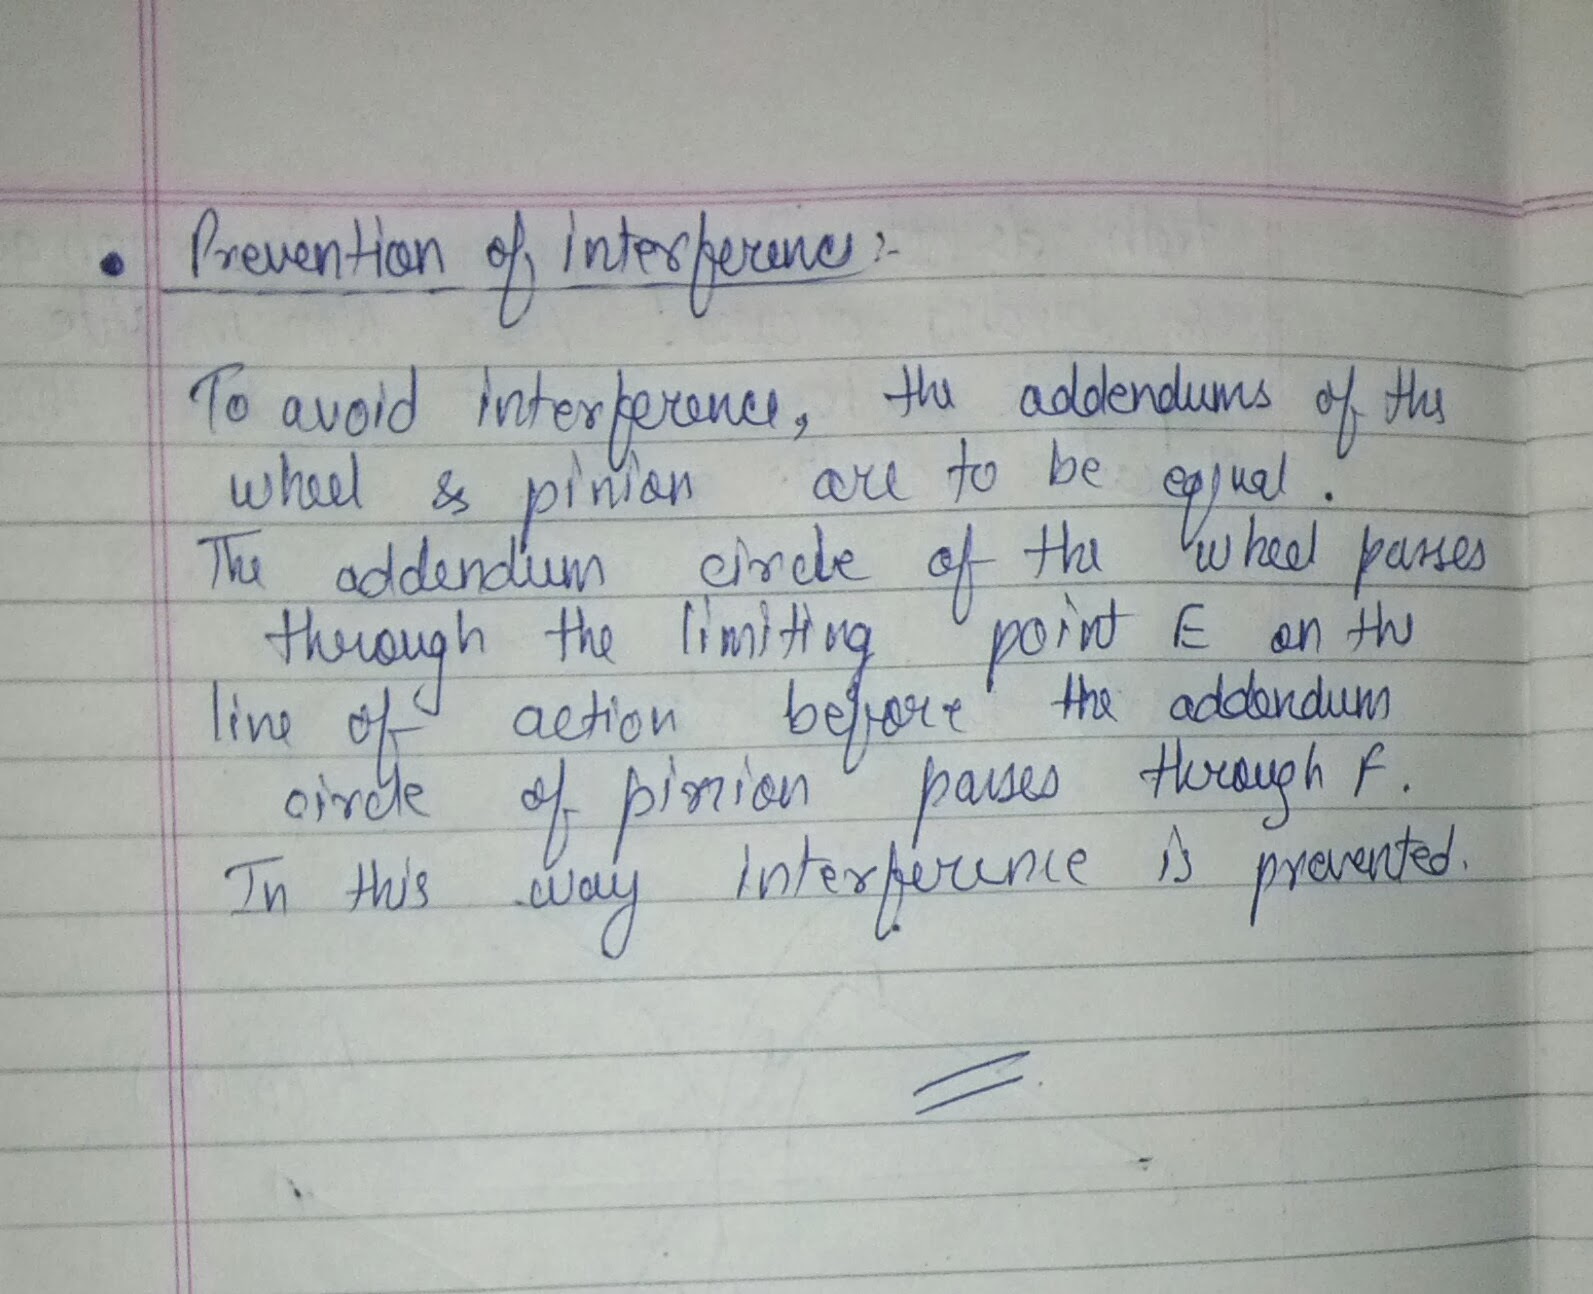 • Prevention of interference :-
To avoid interference, the addendums of the
wheel & pinion are to be equal.
The addendum circle of the wheel passes
through the limiting point E on the
line of action before the addendum
circle of pinion passes through F.
In this way interference is prevented.